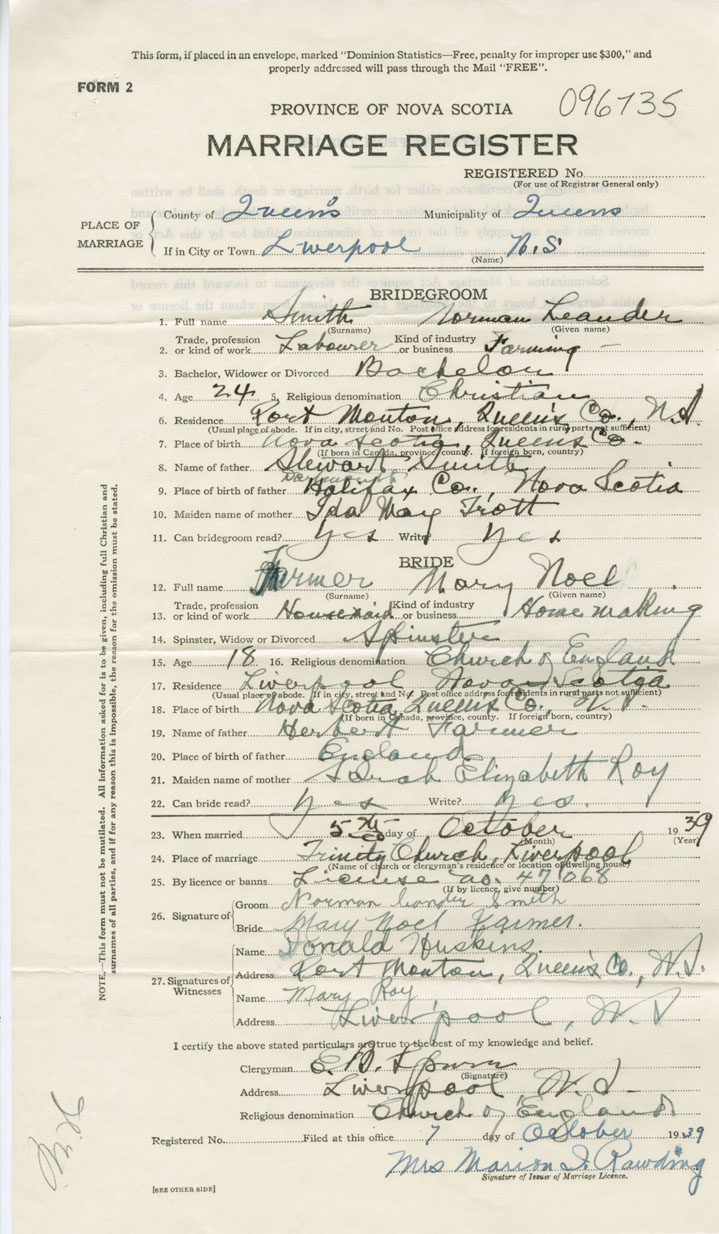 This form, if placed in an envelope, marked "Dominion Statistics—Free, penalty for improper use $300," and
properly addressed will pass through the Mail "FREE".
FORM 2
PROVINCE OF NOVA SCOTIA
096735
MARRIAGE REGISTER
REGISTERED No.
(For use of Registrar General only)
PLACE OF MARRIAGE
County of Queen's Municipality of Queens
If in City or Town Liverpool N.S.
(Name)
BRIDEGROOM
1. Full name Smith Norman Leander
(Surname) (Given name)
2. Trade, profession or kind of work Labourer Kind of industry or business Farming
3. Bachelor, Widower or Divorced Bachelor
4. Age 24 5. Religious denomination Christian
6. Residence Port Mouton, Queen's Co., N.S.
(Usual place of abode. If in city, street and No. Post office address for residents in rural parts not sufficient)
7. Place of birth Nova Scotia, Queens Co.
(If born in Canada, province, county. If foreign born, country)
8. Name of father Stewart Smith
9. Place of birth of father Halifax Co., Nova Scotia
10. Maiden name of mother Ida May Trott
11. Can bridegroom read? yes Write yes
BRIDE
12. Full name Farmer Mary Noel
(Surname) (Given name)
13. Trade, profession or kind of work Housemaid Kind of industry or business Home making
14. Spinster, Widow or Divorced Spinster
15. Age 18 16. Religious denomination Church of England
17. Residence Liverpool Nova Scotia
(Usual place of abode. If in city, street and No. Post office address for residents in rural parts not sufficient)
18. Place of birth Nova Scotia, Queens Co., N.S.
(If born in Canada, province, county. If foreign born, country)
19. Name of father Herbert Farmer
20. Place of birth of father England
21. Maiden name of mother Sarah Elizabeth Roy
22. Can bride read? yes Write? yes.
23. When married 5th day of October 1939
(Month) (Year)
24. Place of marriage Trinity Church, Liverpool
(Name of church or clergyman's residence or location of dwelling house)
25. By licence or banns License no. 47068
(If by licence, give number)
26. Signature of
Groom Norman Leander Smith
Bride Mary Noel Farmer.
27. Signatures of Witnesses
Name Donald Huskins.
Address Port Mouton, Queen's Co., N.S.
Name Mary Roy
Address Liverpool, N.S
I certify the above stated particulars are true to the best of my knowledge and belief.
Clergyman
(Signature)
Address Liverpool, N.S.
Religious denomination Church of England
Registered No. Filed at this office 7 day of October 1939
Mrs Marion I. Rawding
Signature of Issuer of Marriage Licence.
[SEE OTHER SIDE]
NOTE.—This form must not be mutilated. All information asked for is to be given, including full Christian and
surnames of all parties, and if for any reason this is impossible, the reason for the omission must be stated.